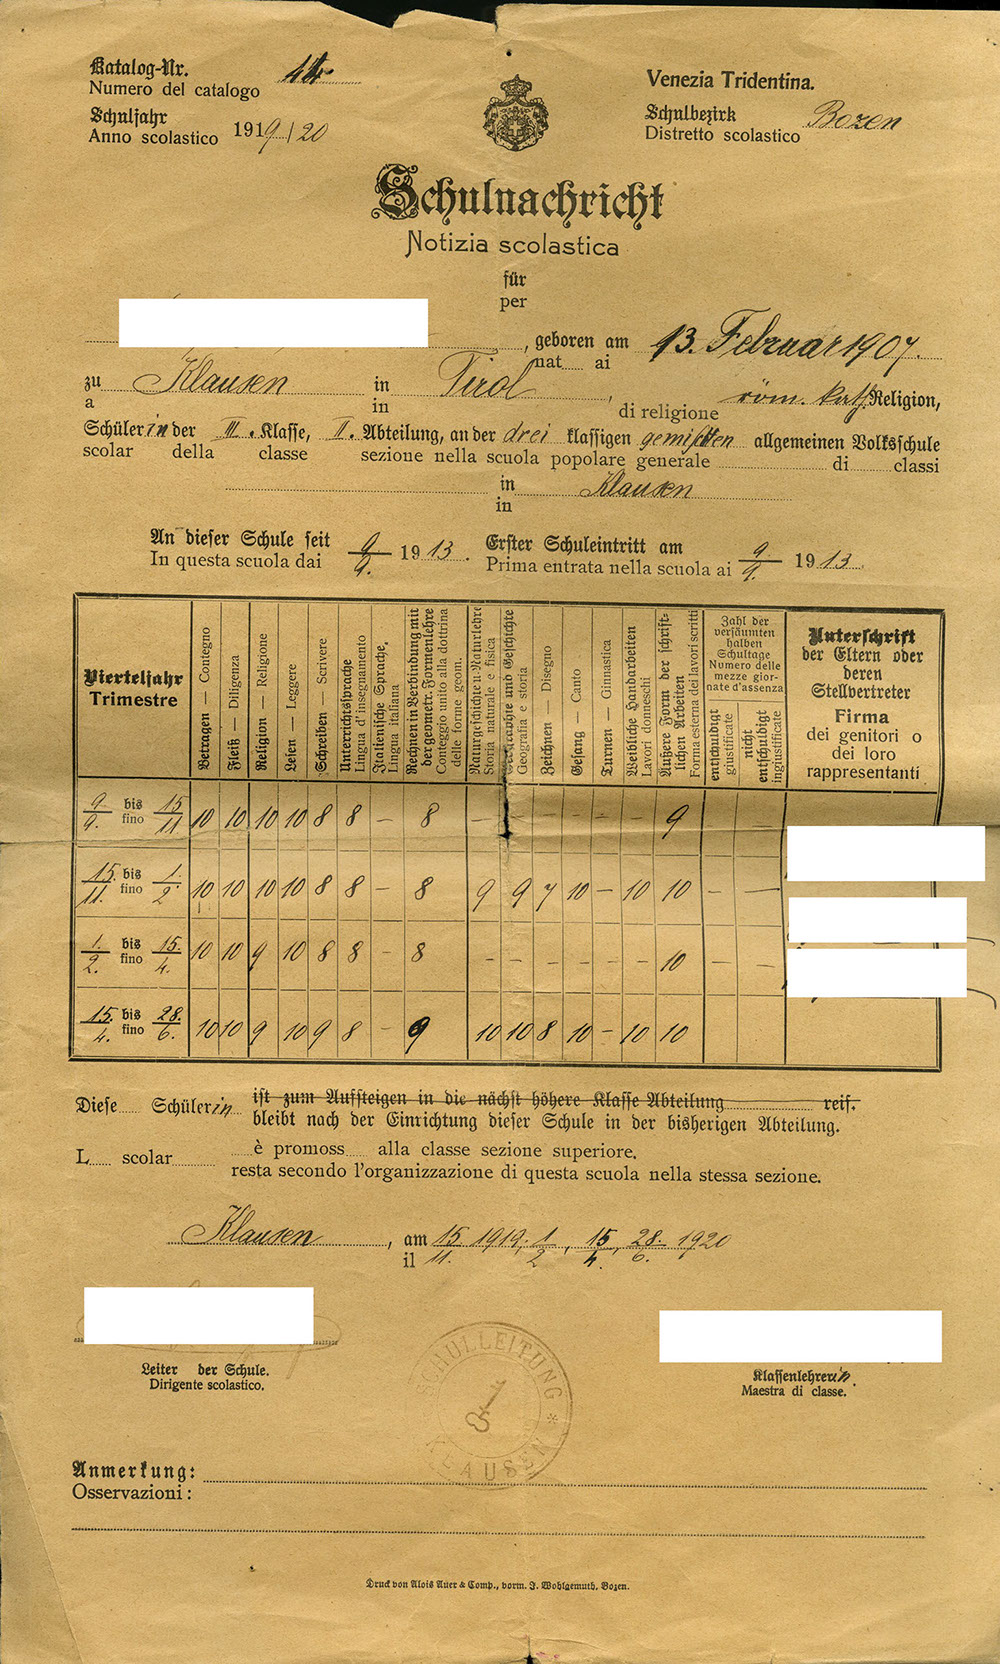 Katalog-Nr.
Numero del catalogo
Schuljahr
Anno scolastico 1919/20
Venezia Tridentina.
Schulbezirk
Distretto scolastico Bozen
Schulnachricht
Notizia scolastica
für
per
, geboren am 13. Februar 1907.
nat ai
zu Klausen in Tirol, röm. kath. Religion,
a in di religione
Schülerin der III. Klasse, II. Abteilung, an der drei klassigen gemischten allgemeinen Volksschule
scolar della classe sezione nella scuola popolare generale di classi
in Klausen
in
An dieser Schule seit 9/9. 1913. Erster Schuleintritt am 9/9. 1913.
In questa scuola dai Prima entrata nella scuola ai
Vierteljahr
Trimestre
Betragen — Contegno
Fleiß — Diligenza
Religion — Religione
Lesen — Leggere
Schreiben — Scrivere
Unterrichtssprache
Lingua d'insegnamento
Italienische Sprache,
Lingua italiana
Rechnen in Verbindung mit
der geometr. Formenlehre
Conteggio unito alla dottrina
delle forme geom.
Naturgeschichte u. Naturlehre
Storia naturale e fisica
Geographie und Geschichte
Geografia e storia
Zeichnen — Disegno
Gesang — Canto
Turnen — Ginnastica
Weibliche Handarbeiten
Lavori donneschi
Äußere Form der schrift-
lichen Arbeiten
Forma esterna dei lavori scritti
Zahl der
versäumten
halben
Schultage
Numero delle
mezze gior-
nate d'assenza
entschuldigt
giustificate
nicht
entschulbigt
ingiustificate
Unterschrift
der Eltern oder
deren
Stellvertreter
Firma
dei genitori o
dei loro
rappresentanti
9/9. bis fino 15/11 10 10 10 10 8 8 – 8 – – – – – – 9 –
15/11. bis fino 1./2. 10 10 10 10 8 8 – 8 9 9 7 10 – 10 10 – –
1./2. bis fino 15./4. 10 10 9 10 8 8 – 8 – – – – – – 10 – –
15./4. bis fino 28./6. 10 10 9 10 9 8 – 9 10 10 8 10 – 10 10
Diese Schülerin ist zum Aufsteigen in die nächst höhere Klasse Abteilung reif.
bleibt nach der Einrichtung dieser Schule in der bisherigen Abteilung.
L scolar è promoss alla classe sezione superiore.
resta secondo l'organizzazione di questa scuola nella stessa sezione.
Klausen, am 15/11. 1919, 1/2, 15/4., 28./6. 1920
il
Leiter der Schule.
Dirigente scolastico.
SCHULLEITUNG * KLAUSEN
Klassenlehrerin.
Maestra di classe.
Anmerkung:
Osservazioni:
Druck von Alois Auer & Comp., vorm. J. Wohlgemuth, Bozen.